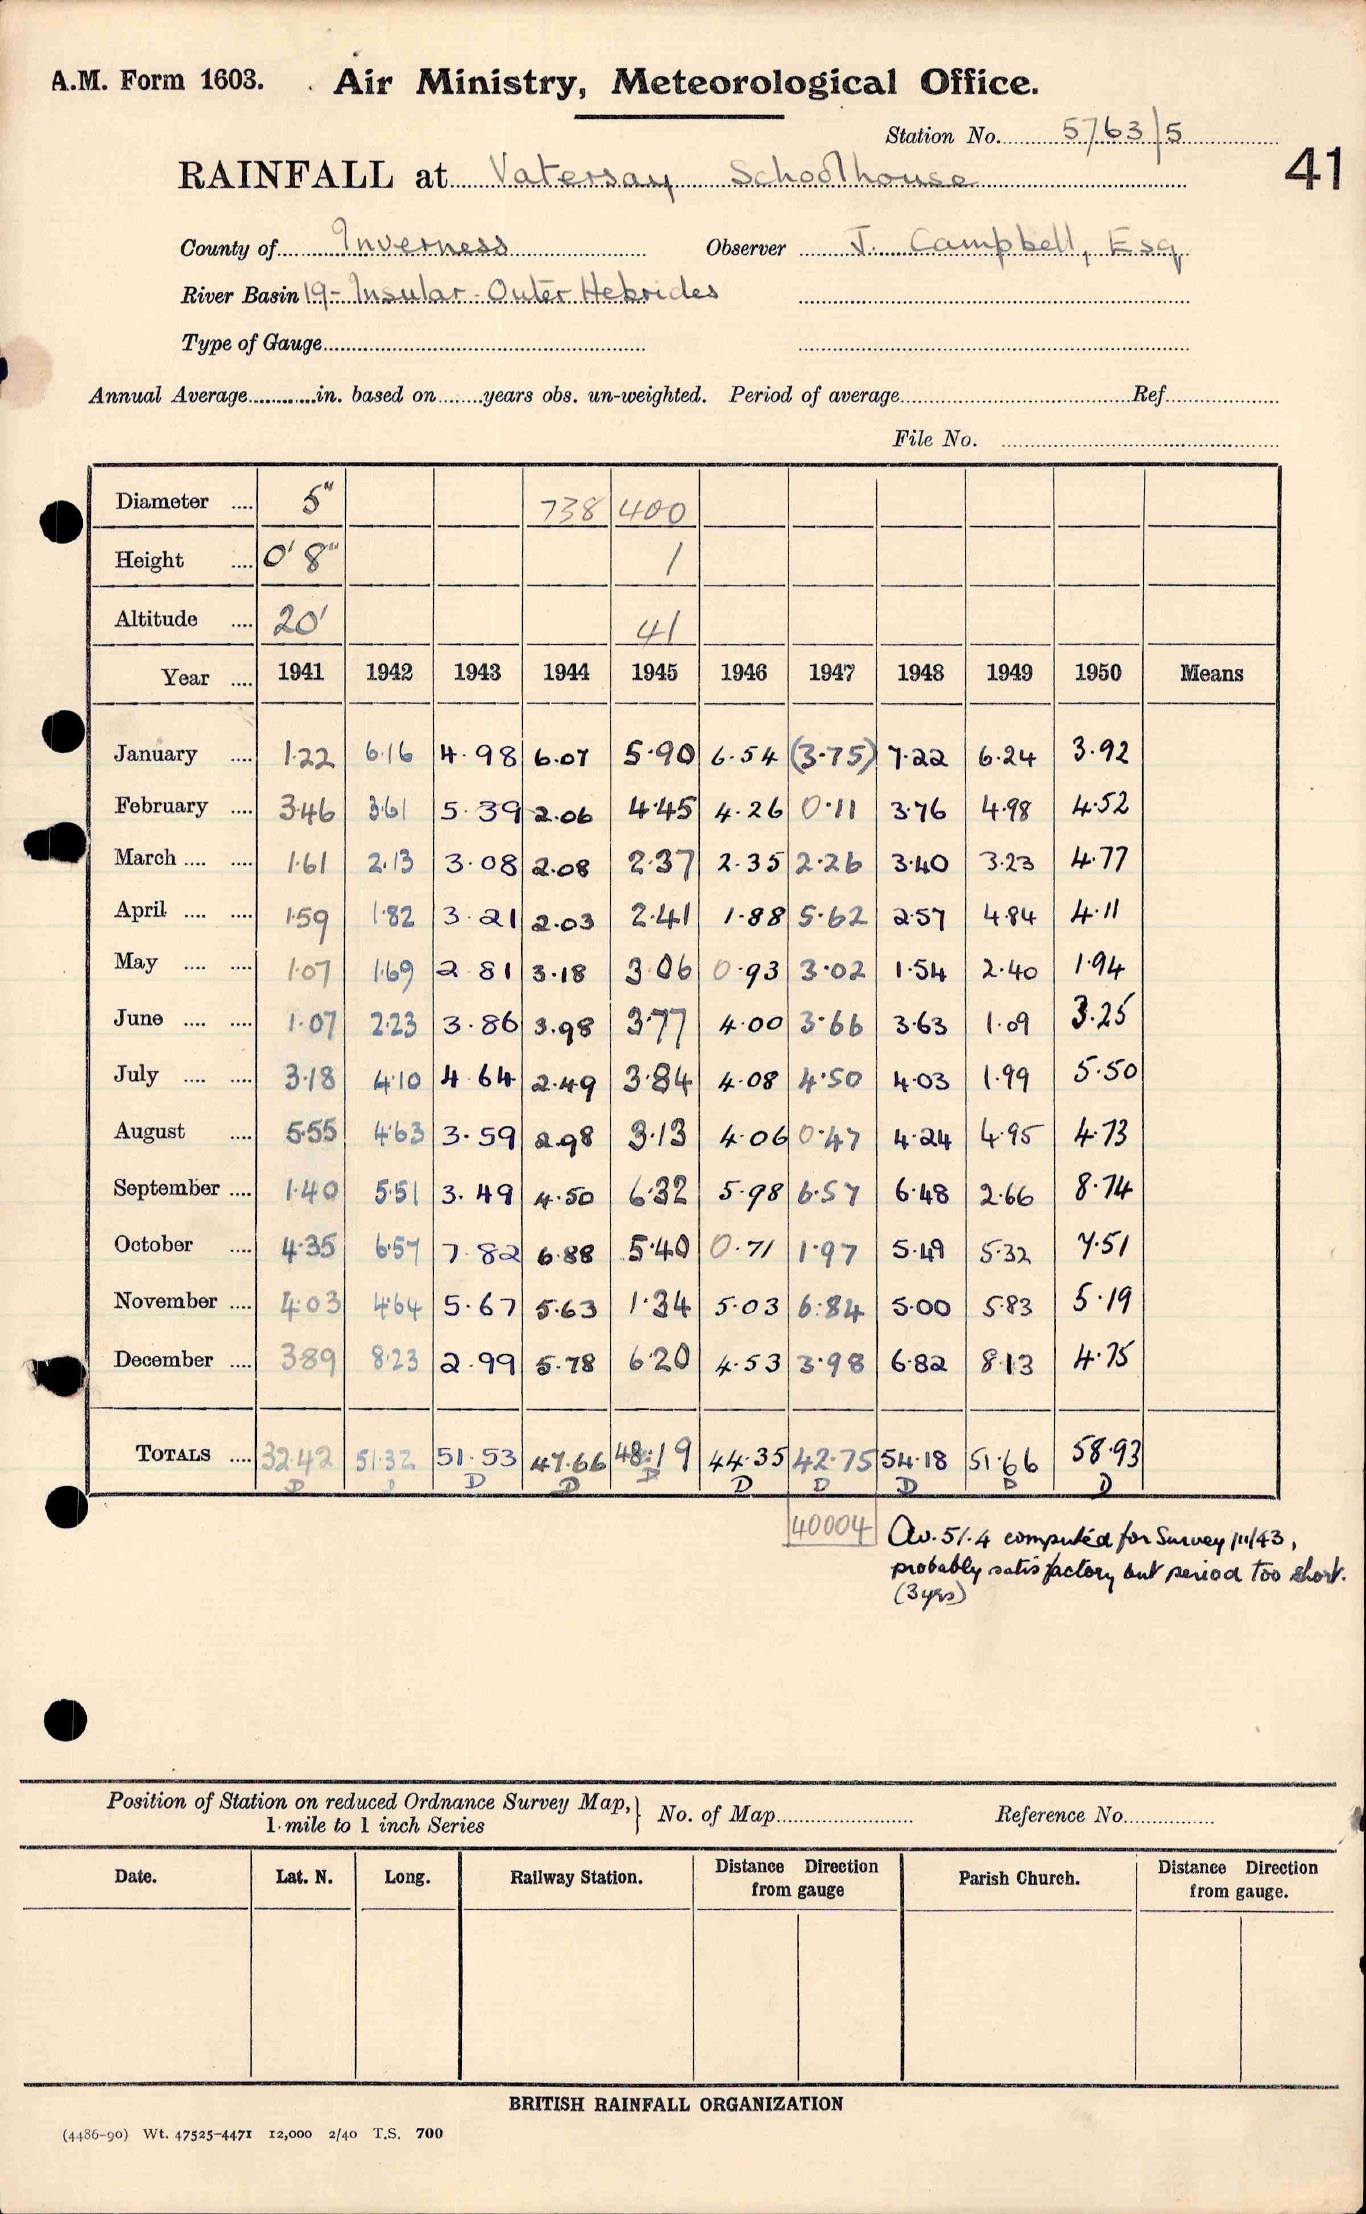 A.M. Form 1603. Air Ministry, Meteorological Office.
Station No. 5763/5
RAINFALL at Vatersay Schoolhouse 41
County of Inverness Observer J. Campbell, Esq
River Basin 19- Insular. Outer Hebrides
Type of Gauge
Annual Average in. based on years obs. un-weighted. Period of average Ref
File No.
Diameter 5" 738 400
Height 0' 8" 1
Altitude 20' 41
Year 1941 1942 1943 1944 1945 1946 1947 1948 1949 1950 Means
January 1.22 6.16 4.98 6.07 5.90 6.54 (3.75) 7.22 6.24 3.92
February 3.46 3.61 5.39 2.06 4.45 4.26 0.11 3.76 4.98 4.52
March 1.61 2.13 3.08 2.08 2.37 2.35 2.26 3.40 3.23 4.77
April 1.59 1.82 3.21 2.03 2.41 1.88 5.62 2.57 4.84 4.11
May 1.07 1.69 2.81 3.18 3.06 0.93 3.02 1.54 2.40 1.94
June 1.07 2.23 3.86 3.98 3.77 4.00 3.66 3.63 1.09 3.25
July 3.18 4.10 4.64 2.49 3.84 4.08 4.50 4.03 1.99 5.50
August 5.55 4.63 3.59 2.98 3.13 4.06 0.47 4.24 4.95 4.73
September 1.40 5.51 3.49 4.50 6.32 5.98 6.57 6.48 2.66 8.74
October 4.35 6.57 7.82 6.88 5.40 0.71 1.97 5.49 5.32 7.51
November 4.03 4.64 5.67 5.63 1.34 5.03 6.84 5.00 5.83 5.19
December 3.89 8.23 2.99 5.78 6.20 4.53 3.98 6.82 8.13 4.75
TOTALS 32.42 51.32 51.53 47.66 48.19 44.35 42.75 54.18 51.66 58.93
D D D D D D D D D D
40004 Av. 51.4 computed for Survey 1/11/43,
probably satisfactory but period too short.
(3 yrs)
Position of Station on reduced Ordnance Survey Map, No. of Map Reference No.
1 mile to 1 inch Series
Date. Lat. N. Long. Railway Station. Distance Direction from gauge Parish Church. Distance Direction from gauge.
BRITISH RAINFALL ORGANIZATION
(4486-90) Wt. 47525-4471 12,000 2/40 T.S. 700